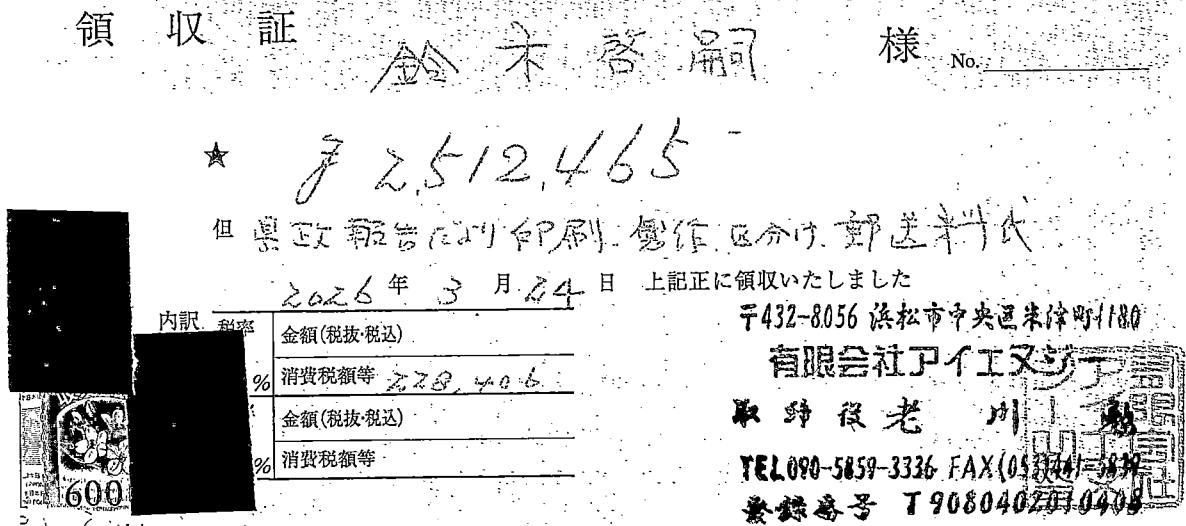 領 収 証
鈴木啓嗣 様 No.
★ ¥2,512,465-
但 県政報告だより印刷、製作、区分け、郵送料代
2026年3月24日 上記正に領収いたしました
内訳 税率
金額(税抜・税込)
% 消費税額等 228,406
金額(税抜・税込)
% 消費税額等
600
〒432-8056 浜松市中央区米津町1180
有限会社アイエヌジー
取締役 老川
TEL 090-5859-3336 FAX(053)441-
登録番号 T9080402010408